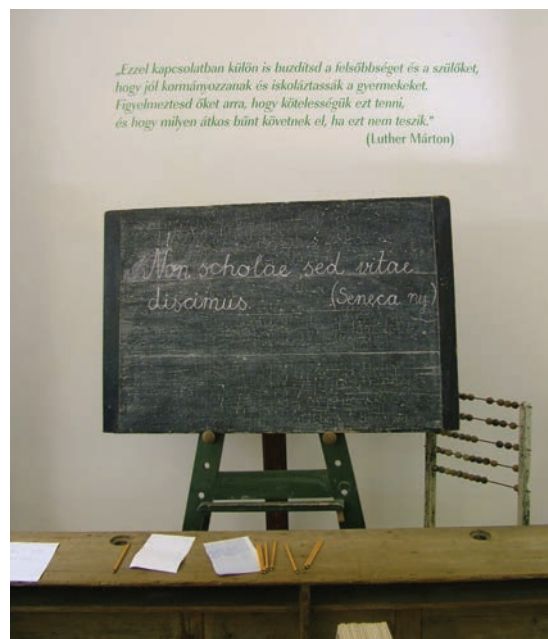 „Ezzel kapcsolatban külön is buzdítsd a felsőbbséget és a szülőket,
hogy jól kormányozzanak és iskoláztassák a gyermekeket.
Figyelmeztesd őket arra, hogy kötelességük ezt tenni,
és hogy milyen átkos bűnt követnek el, ha ezt nem teszik.”
(Luther Márton)
Non scholae sed vitae
discimus. (Seneca ny)